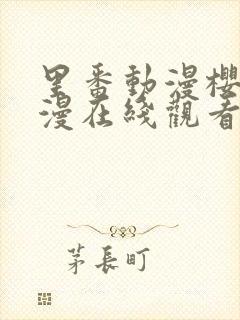 里番動漫櫻
漫在綫觀看
茅長町